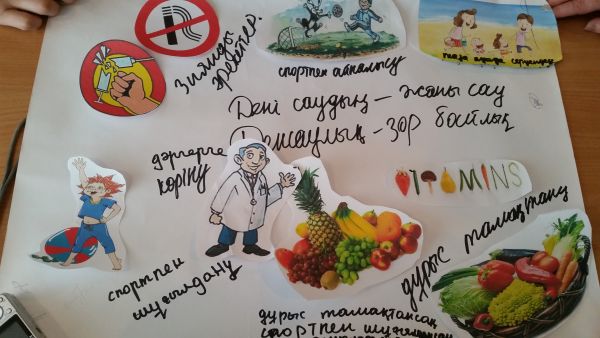 Зиянды
әдеттер.
спортпен айналысу
таза ауада серуендеу
Дені саудың – жаны сау
Денсаулық – зор байлық
дәрігерге
көріну
VITAMINS
спортпен
шұғылдану
дұрыс тамақтану
дұрыс тамақтансаң
спортпен шұғылдансаң